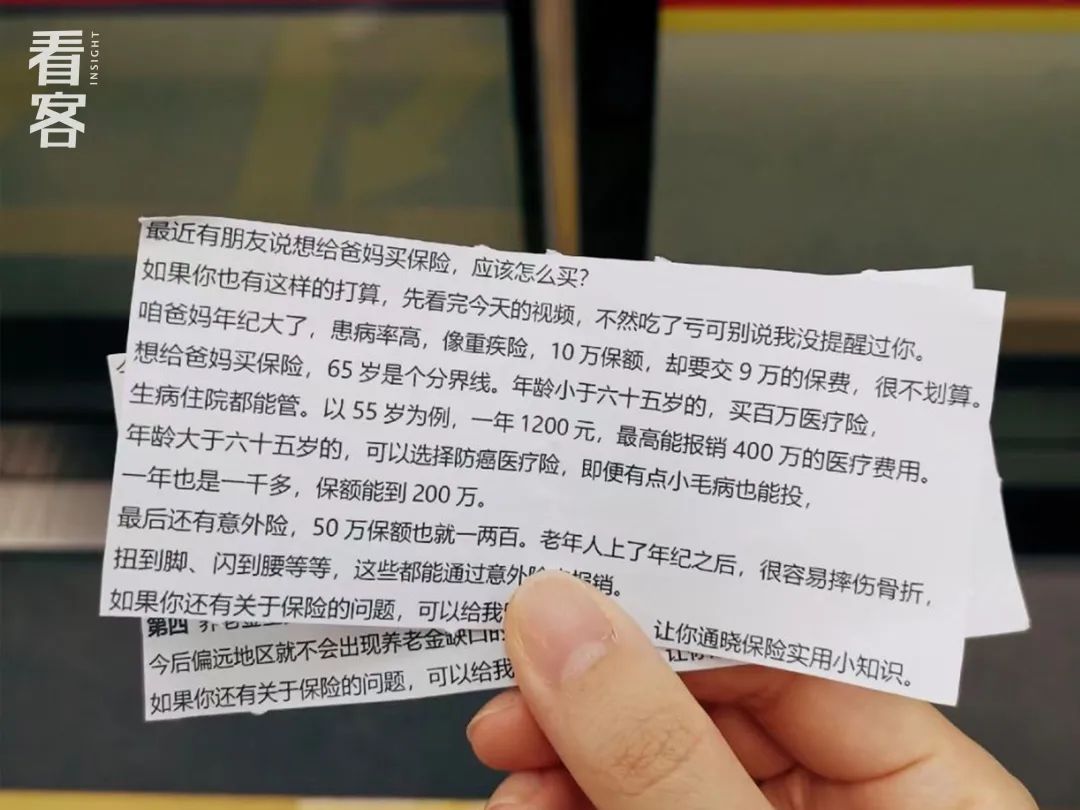 看客
INSIGHT
最近有朋友说想给爸妈买保险，应该怎么买？
如果你也有这样的打算，先看完今天的视频，不然吃了亏可别说我没提醒过你。
咱爸妈年纪大了，患病率高，像重疾险，10 万保额，却要交 9 万的保费，很不划算。
想给爸妈买保险，65 岁是个分界线。年龄小于六十五岁的，买百万医疗险，
生病住院都能管。以 55 岁为例，一年 1200 元，最高能报销 400 万的医疗费用。
年龄大于六十五岁的，可以选择防癌医疗险，即便有点小毛病也能投，
一年也是一千多，保额能到 200 万。
最后还有意外险，50 万保额也就一两百。老年人上了年纪之后，很容易摔伤骨折，
扭到脚、闪到腰等等，这些都能通过意外 报销。
如果你还有关于保险的问题，可以给我 让你通晓保险实用小知识。
第四 养老金
今后偏远地区就不会出现养老金缺口的
如果你还有关于保险的问题，可以给我 让你